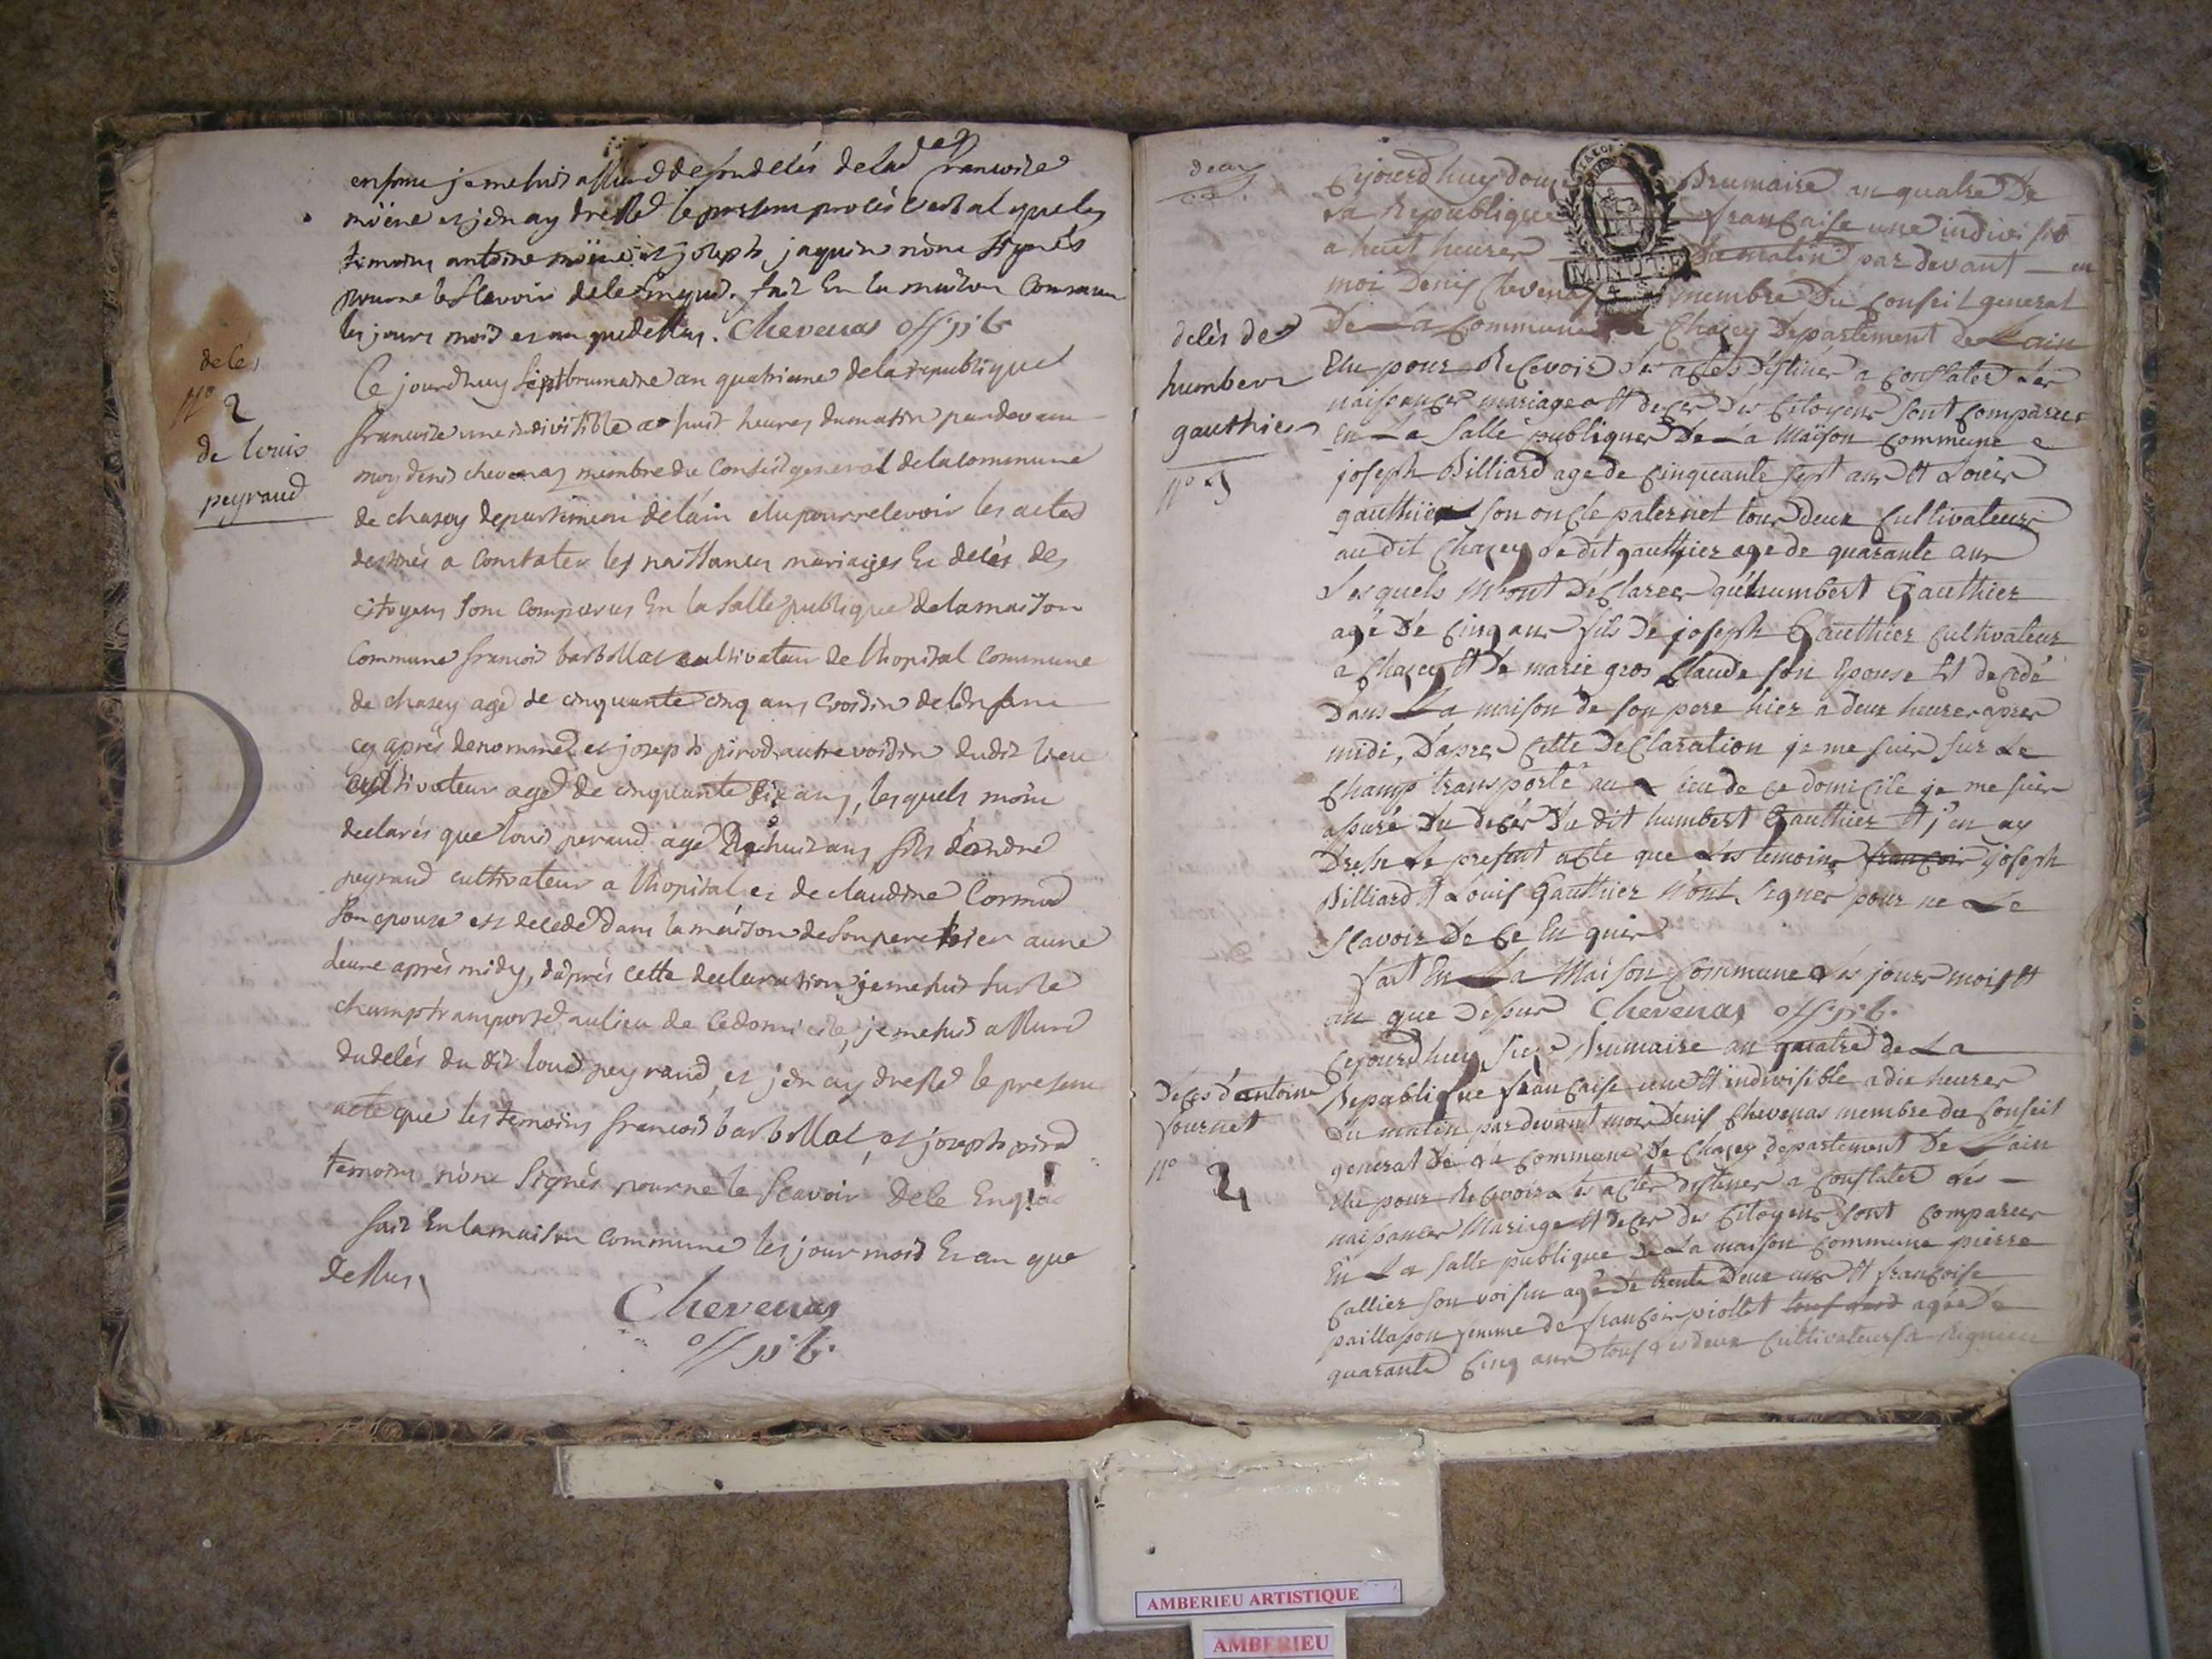 enfans je me suis assuré de son decés de lad francoise
moëne et j'en ay dressé le present procés verbal que les
temoins antoine moëne et joseph jaquin n'ont signés
pour ne le scavoir de ce enquis. fait En la maison Commune
les jours mois et an que dessus. Chevenas off pb
deces
N° 2
de louis
peyraud
Ce jourdhuy sept brumaire an quatrieme de la republique
francoise une indivisible a huit heures du matin pardevant
moy denis chevenas membre du Conseil general de la commune
de chasey departement de l'ain elu pour recevoir les actes
destinés a Constater les naissances mariages Et decés des
citoyens sont Comparus En la salle publique de la maison
Commune francois barbollat cultivateur de l'hopital Commune
de chasey agé de cinquante cinq ans voisin de l'enfant
cy aprés denommé et joseph pirod autre voisin dudit lieu
cultivateur agé de cinquante six ans, lesquels m'ont
declarés que louis peraud agé de huit ans fils d'andré
peyraud cultivateur a l'hopital et de claudine Cormod
son epouse est decedé dans la maison de son pere hier a une
heure aprés midy, d'aprés cette declaration je me suis sur le
champ transporté au lieu de ce domicile, je me suis assuré
du decés du dit louis peyraud, et j'en ay dressé le present
acte que les temoins francois barbollat, et joseph pirod
temoins n'ont signés pour ne le scavoir De ce Enquis
fait En la maison Commune les jour mois Et an que
dessus
Chevenas
off pb.
deux
Cejourdhuy douze Brumaire an quatre De
La Republique francaise une indivisib
a huit heures du matin par devant en
moi Denis Chevenas membre Du Conseil general
De La Commune de Chazey Departement de Lain
decés de
humbert
gauthier
N° 3
Elu pour Recevoir Les actes Destinés a Constater Les
naissances mariage et deces Des Citoyens sont Comparus
En La Salle publique De La Maison Commune
joseph Billiard age de Cinquante sept ans et Louis
gauthier son oncle paternel tous deux Cultivateurs
audit Chazey Ledit gauthier age de quarante ans
Lesquels m'ont Déclarer qu'humbert Gauthier
agé De Cinq ans fils De joseph Gauthier Cultivateur
a Chazey et De marie gros Claude son Epouse Et decedé
Dans La maison de son pere hier a deux heures apres
midi, Dapres Cette Declaration je me suis sur Le
Champ transporté au Lieu de ce domicile je me suis
assuré Du deces Du dit humbert Gauthier et j'en ay
Dressé Le present acte que Les temoins francois joseph
Billiard et Louis Gauthier N'ont Signer pour ne Le
Scavoir De ce Enquis
fait En La Maison Commune Les jour mois et
an que Dessus Chevenas off pb.
Decés d'antoine
fournet
N° 4
Cejourdhuy Seize Brumaire an quatre de La
Republique francaise une et indivisible a dix heures
Du matin par devant moi Denis Chevenas membre du Conseil
general De La Commune De Chazey departement De Lain
Elu pour Recevoir Les actes destiner a Constater Les
naissances Mariage et deces Des Citoyens sont Comparus
En La Salle publique De La maison Commune pierre
Callier son voisin agé De trente Deux ans et francoise
paillasson femme de francois piollet agée De
quarante Cinq ans tous Les deux Cultivateurs a Rignieu
AMBERIEU ARTISTIQUE
AMBERIEU